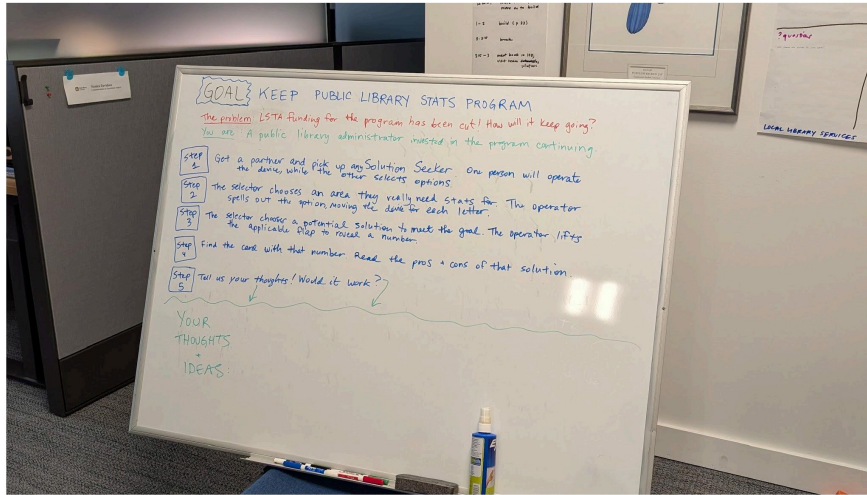 1-2 build
? question
LOCAL LIBRARY SERVICES
GOAL: KEEP PUBLIC LIBRARY STATS PROGRAM
The problem: LSTA funding for the program has been cut! How will it keep going?
You are: A public library administrator invested in the program continuing.
Step 1 Get a partner and pick up any Solution Seeker. One person will operate
the device, while the other selects options.
Step 2 The selector chooses an area they really need stats for. The operator
spells out the option, moving the device for each letter.
Step 3 The selector chooses a potential solution to meet the goal. The operator lifts
the applicable flap to reveal a number.
Step 4 Find the card with that number. Read the pros + cons of that solution.
Step 5 Tell us your thoughts! Would it work?
YOUR
THOUGHTS
+
IDEAS: